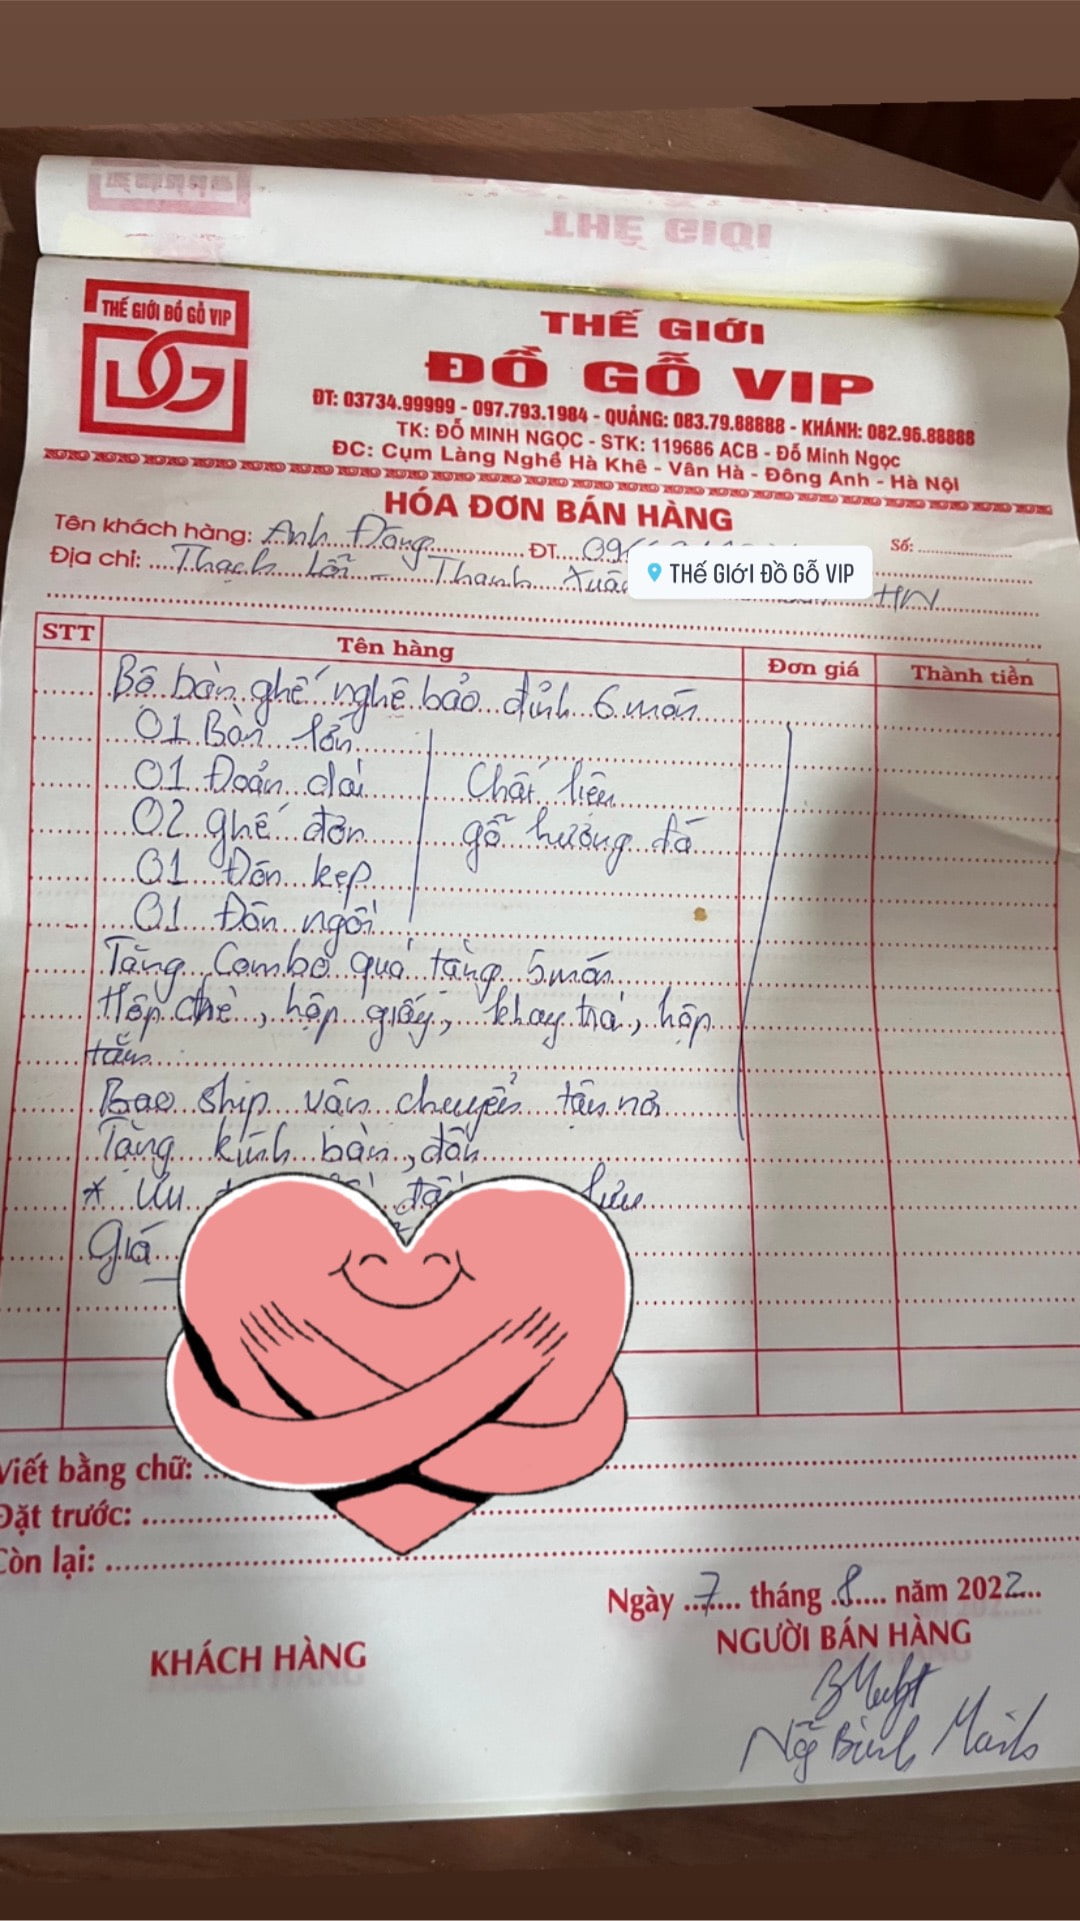 THẾ GIỚI
THẾ GIỚI ĐỒ GỖ VIP
THẾ GIỚI
ĐỒ GỖ VIP
ĐT: 03734.99999 - 097.793.1984 - QUẢNG: 083.79.88888 - KHÁNH: 082.96.88888
TK: ĐỖ MINH NGỌC - STK: 119686 ACB - Đỗ Minh Ngọc
ĐC: Cụm Làng Nghề Hà Khê - Vân Hà - Đông Anh - Hà Nội
HÓA ĐƠN BÁN HÀNG
Tên khách hàng: Anh Đông ĐT. 09 Số:
Địa chỉ: Thạch Lỗi - Thanh Xuân HN
THẾ GIỚI ĐỒ GỖ VIP
STT Tên hàng Đơn giá Thành tiền
Bộ bàn ghế nghê bảo đỉnh 6 món
01 Bàn lớn
01 Đoản dài Chất liệu
02 ghế đơn gỗ hương đá
01 Đôn kẹp
01 Đôn ngồi
Tặng Combo quà tặng 5 món
Hộp chè, hộp giấy, khay trà, hộp
tăm
Bao ship vận chuyển tận nơi
Tặng kính bàn, đôn
* Ưu
Giá
Viết bằng chữ:
Đặt trước:
Còn lại:
Ngày 7 tháng 8 năm 2022
KHÁCH HÀNG NGƯỜI BÁN HÀNG